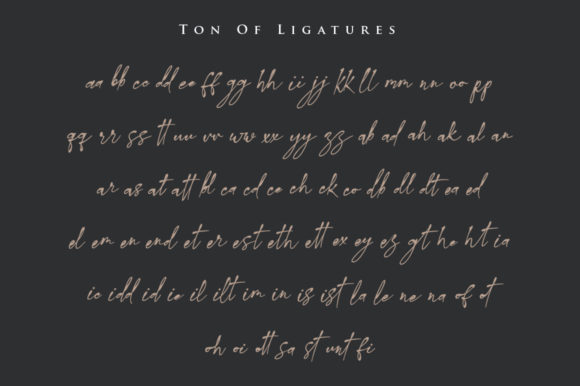 Ton Of Ligatures
aa bb cc dd ee ff gg hh ii jj kk ll mm nn oo pp
qq rr ss tt uu vv ww xx yy zz ab ad ah ak al an
ar as at att bl ca cd ce ch ck co db dl dt ea ed
el em en end et er est eth ett ex ey ez gt he ht ia
ic idd id ie il ilt im in is ist la le ne na of ot
oh oi ott sa st unt fi